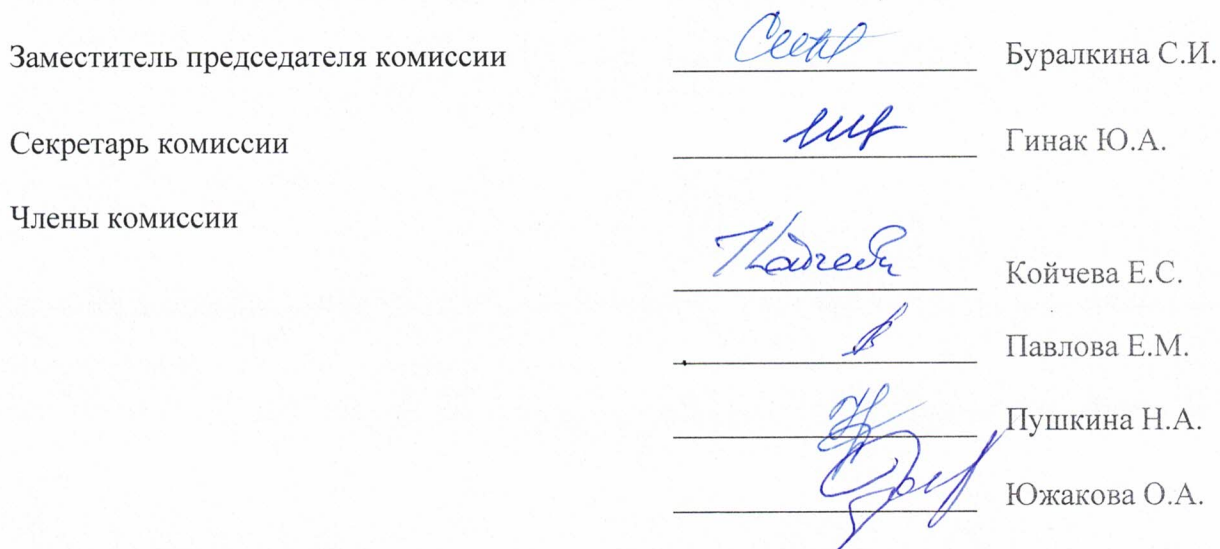 Заместитель председателя комиссии Буралкина С.И.
Секретарь комиссии Гинак Ю.А.
Члены комиссии
Койчева Е.С.
Павлова Е.М.
Пушкина Н.А.
Южакова О.А.